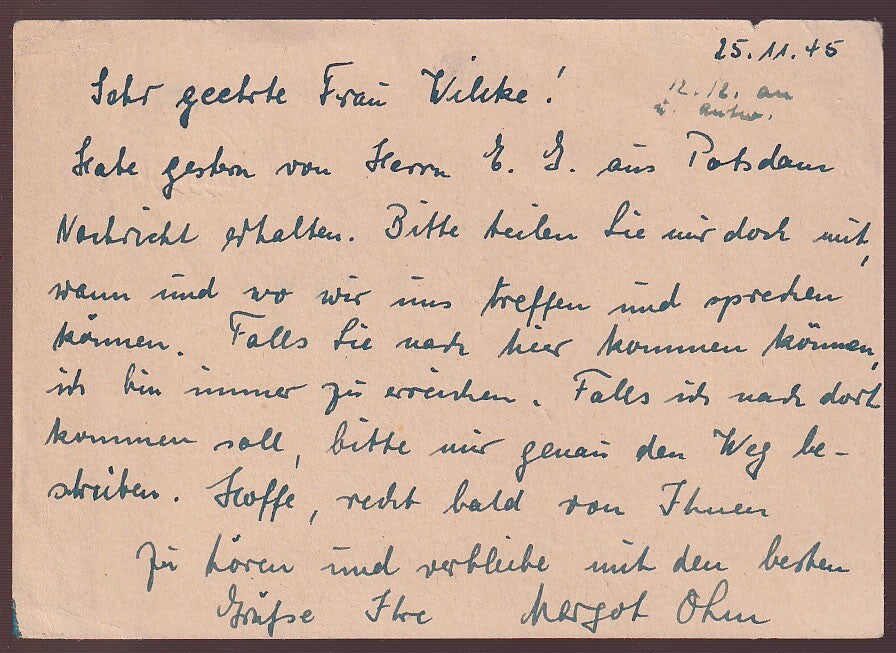 25.11.45
Sehr geehrte Frau Wilcke!
12.12. an
u. antw.
Habe gestern von Herrn E. G. aus Potsdam
Nachricht erhalten. Bitte teilen Sie mir doch mit,
wann und wo wir uns treffen und sprechen
können. Falls Sie nach hier kommen können,
ich bin immer zu erreichen. Falls ich nach dort
kommen soll, bitte mir genau den Weg be-
schreiben. Hoffe, recht bald von Ihnen
zu hören und verbleibe mit den besten
Grüße Ihre Margot Ohm